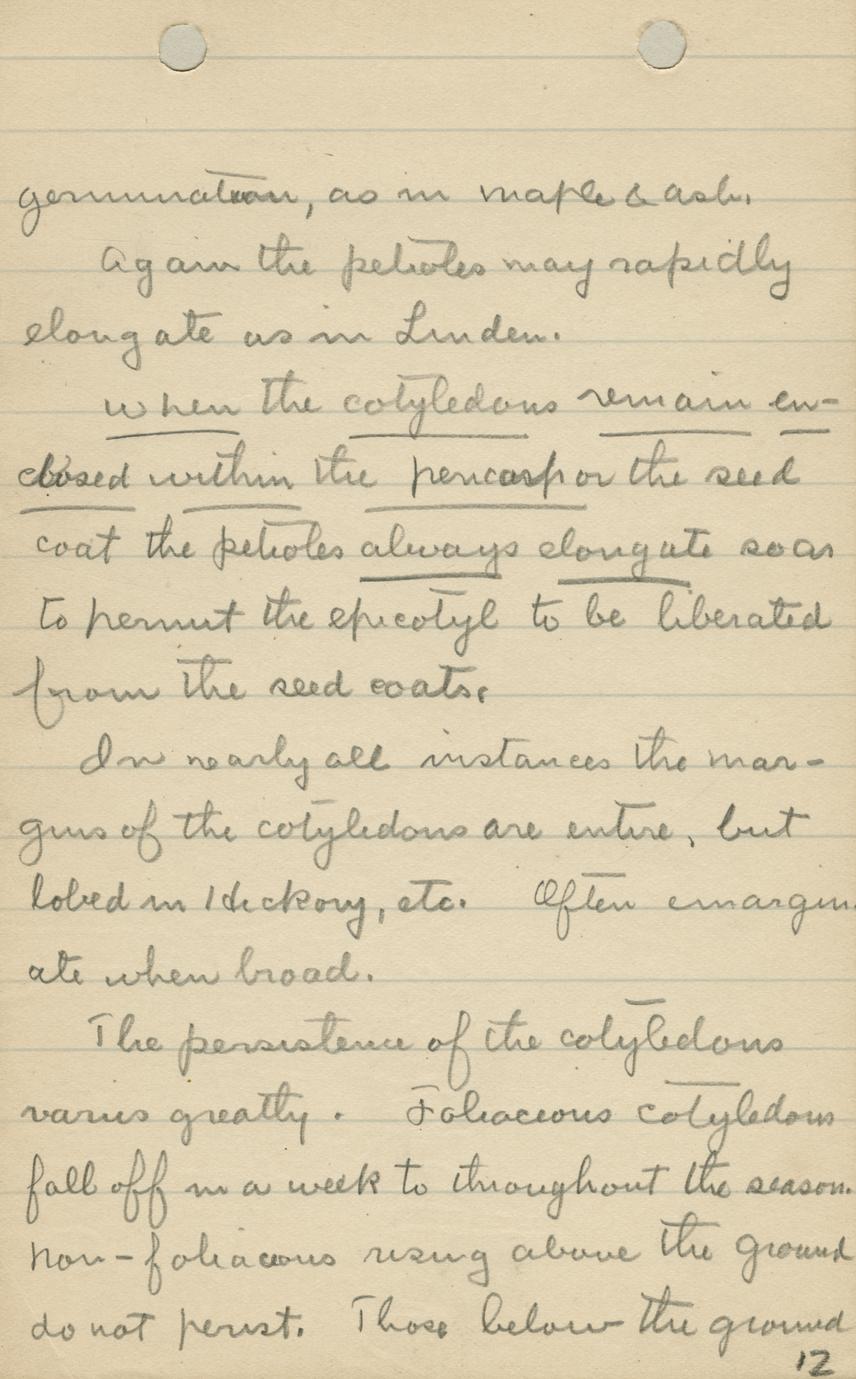 germination, as in maple & ash.
Again the petioles may rapidly
elongate as in Linden.
When the cotyledons remain en-
closed within the pericarp or the seed
coat the petioles always elongate so as
to permit the epicotyl to be liberated
from the seed coats.
In nearly all instances the mar-
gins of the cotyledons are entire, but
lobed in Hickory, etc. Often emargin-
ate when broad.
The persistence of the cotyledons
varies greatly. Foliaceous cotyledons
fall off in a week to throughout the season.
Non-foliaceous rising above the ground
do not persist. Those below the ground
12